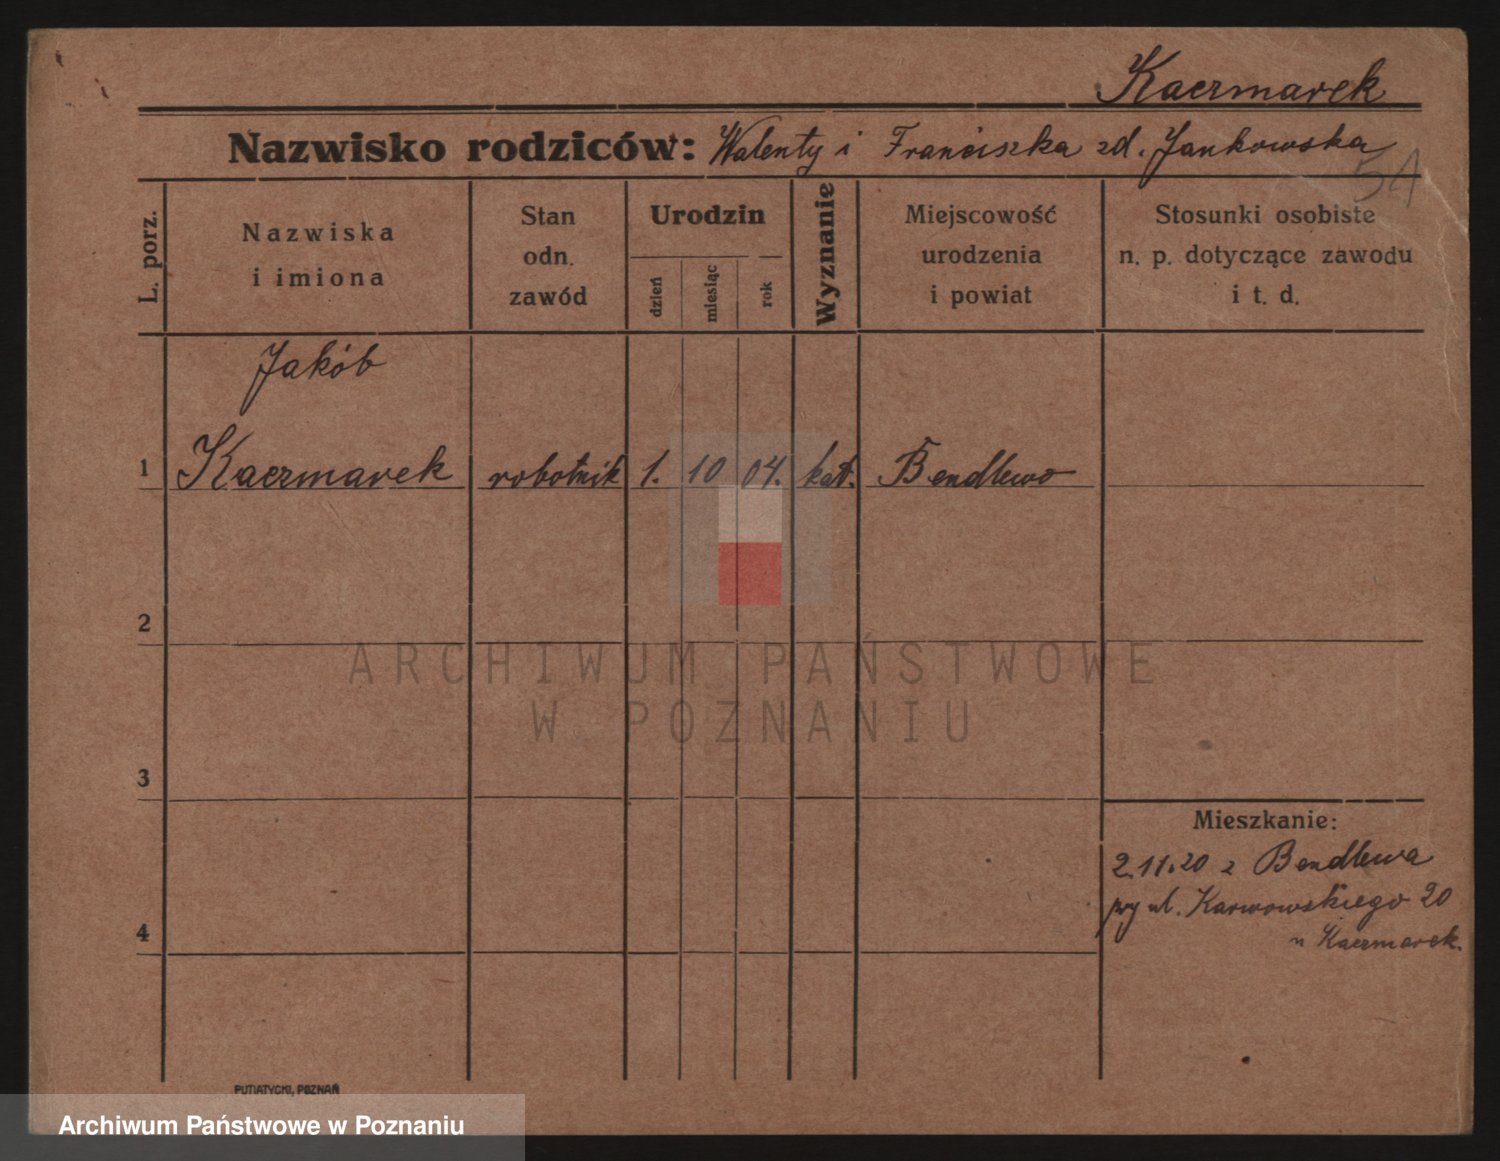 Kaczmarek
Nazwisko rodziców: Walenty i Franciszka zd. Jankowska
51
L. porz.
Nazwiska
i imiona
Stan
odn.
zawód
Urodzin
dzień
miesiąc
rok
Wyznanie
Miejscowość
urodzenia
i powiat
Stosunki osobiste
n. p. dotyczące zawodu
i t. d.
Jakób
1 Kaczmarek robotnik 1. 10 04. kat. Bendlewo
2
ARCHIWUM PAŃSTWOWE
W POZNANIU
3
Mieszkanie:
2.11.20 z Bendlewa
przy ul. Karwowskiego 20
4
u Kaczmarek.
PUTIATYCKI, POZNAŃ
Archiwum Państwowe w Poznaniu